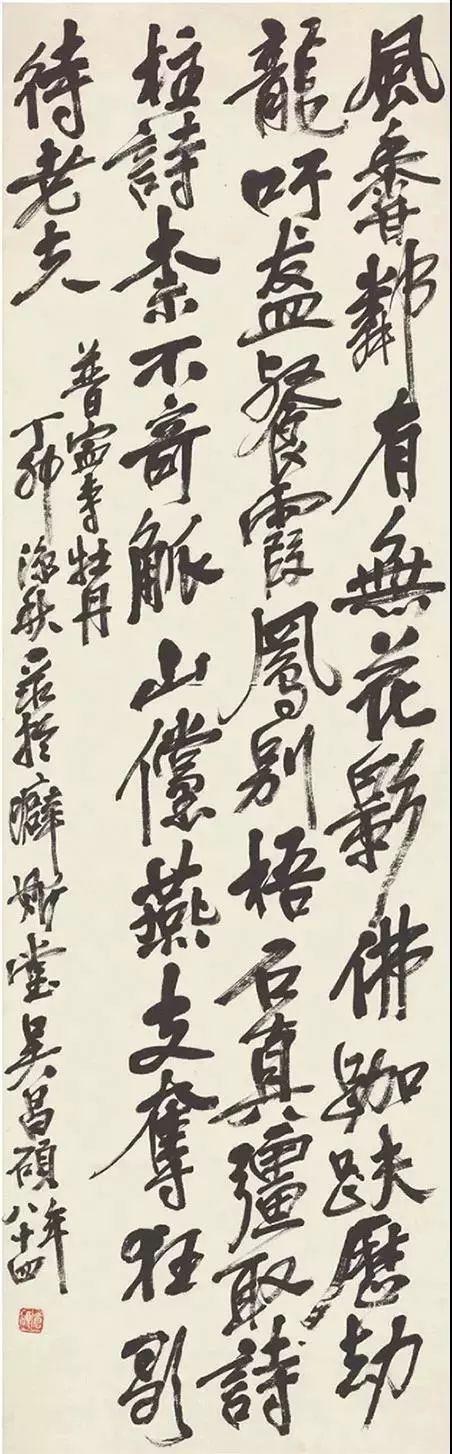 風香鄰有無花影佛跏趺歷劫
龍吁盋餐霞鳳別梧石真彊取詩
柱詩素不奇觚山儻燕支奪狂歌
待老夫
普寧寺牡丹
丁卯秋於癖斯堂吳昌碩年八十四